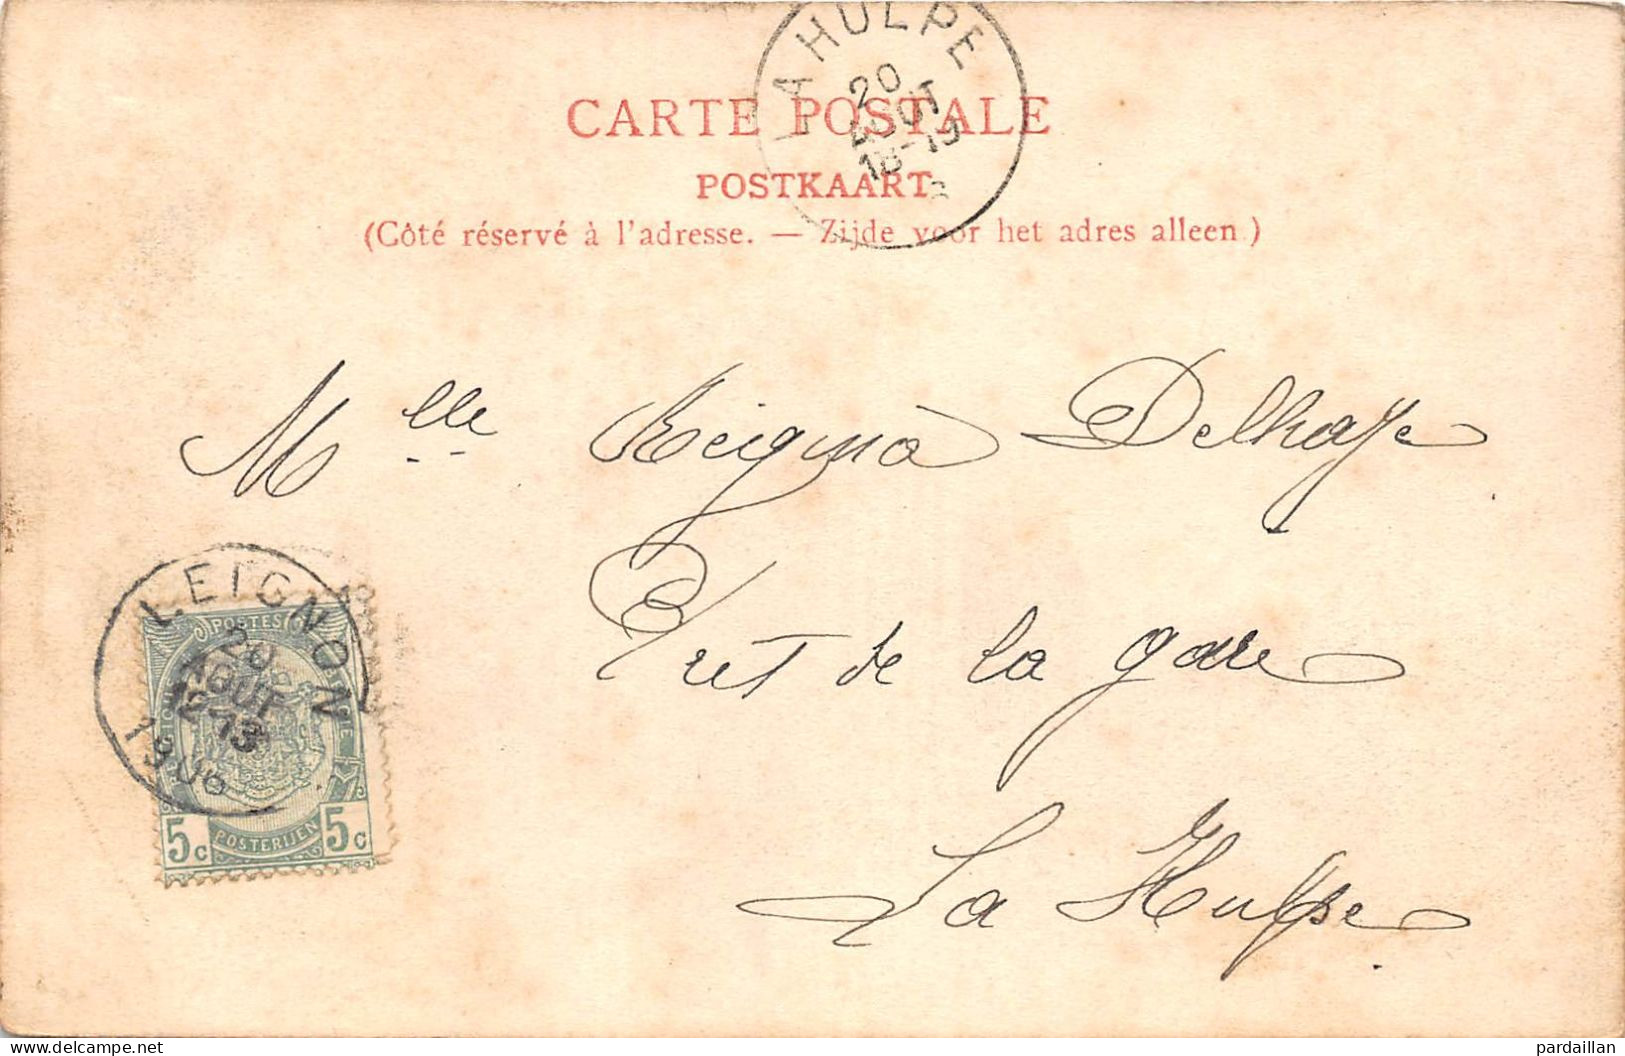 LA HULPE
20
AOUT
18-19
CARTE POSTALE
POSTKAART
(Côté réservé à l'adresse. — Zijde voor het adres alleen)
Mlle Reigina Delhaye
Pret de la gare
La Hulpe
LEIGNON
20
AOUT
12-13
1906
POSTES
BELGIQUE
POSTERIJEN
5c 5c
pardaillan